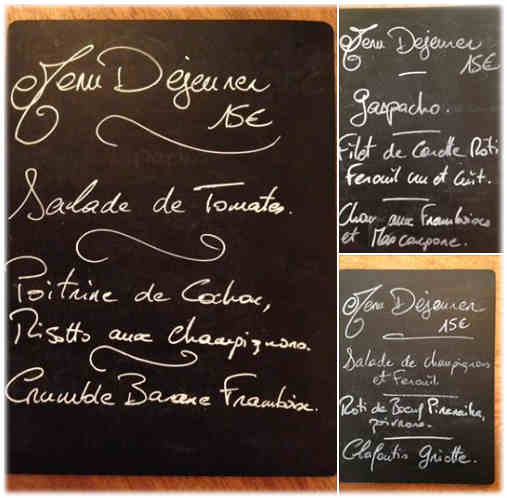 Menu Déjeuner
15€
Salade de Tomates.
Poitrine de Cochon,
Risotto aux champignons.
Crumble Banane Framboise.
Menu Dejeuner
15€
Gaspacho.
Filet de Canette Roti
Fenouil cru et Cuit.
Chou aux Framboises
et Mascarpone.
Menu Déjeuner
15€
Salade de champignons
et Fenouil
Roti de Bœuf Pirenaika,
poivrons.
Clafoutis Griotte.